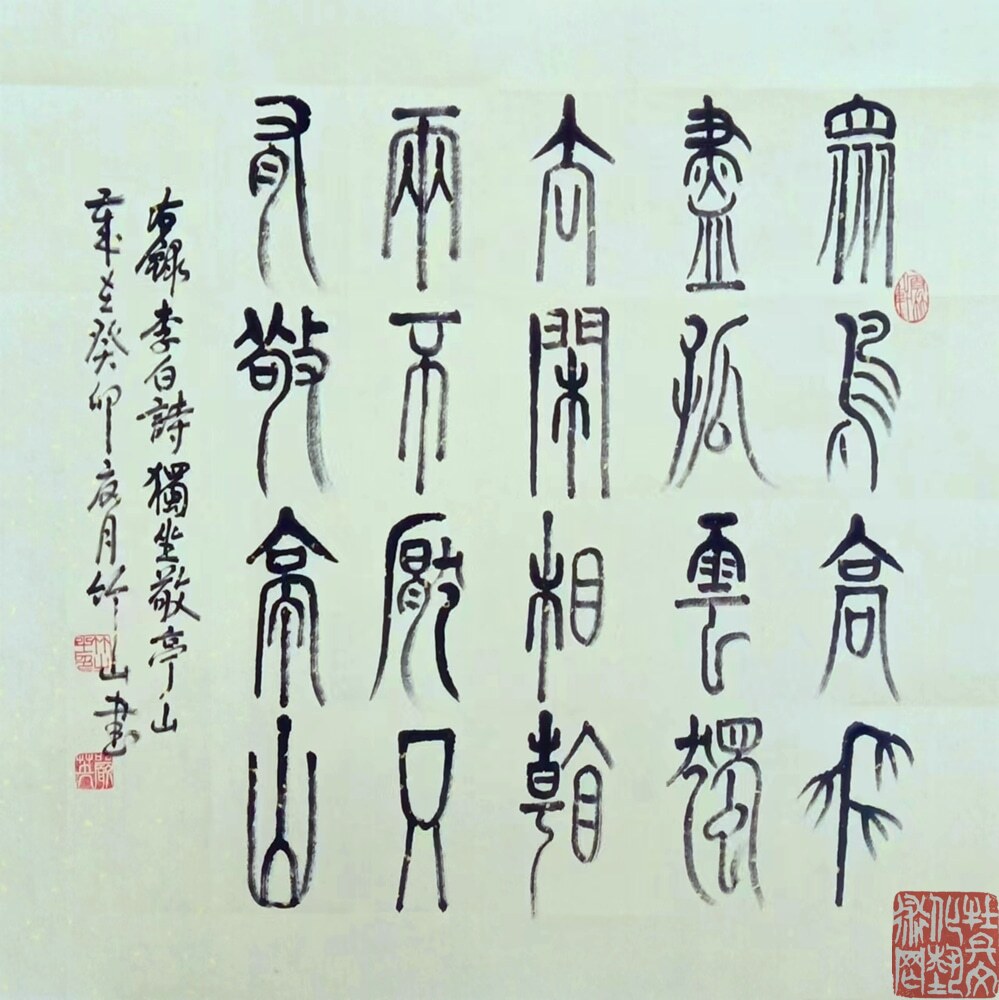 眾鳥高飛
盡孤雲獨
去閑相看
兩不厭只
有敬亭山
右錄李白詩獨坐敬亭山
歲在癸卯夏月竹山書